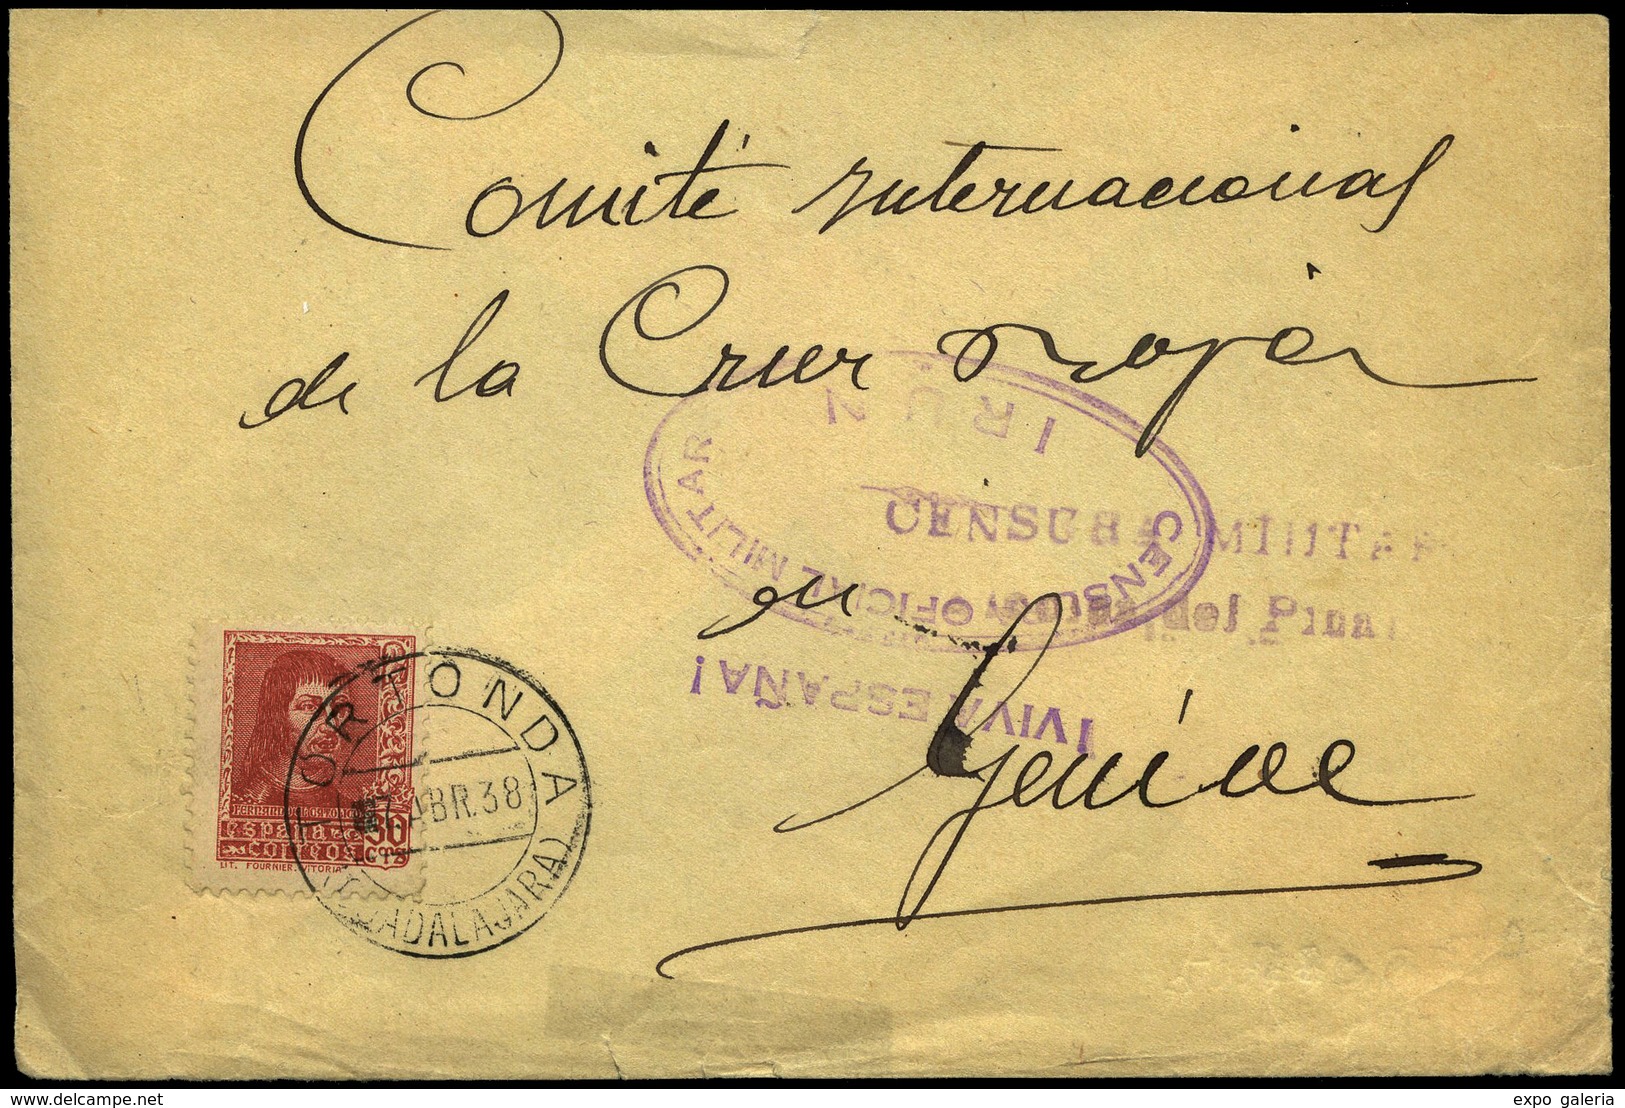 Comité Internacional
de la Cruz Roja
en
Genéve
IRUN
CENSURA OFICIAL MILITAR
¡VIVA ESPAÑA!
CENSURA MILITAR
TORTONDA
7 ABR. 38
(GUADALAJARA)
ESPAÑA
CORREOS
30
CTS
LIT. FOURNIER. VITORIA
delcampe.net
expo galeria